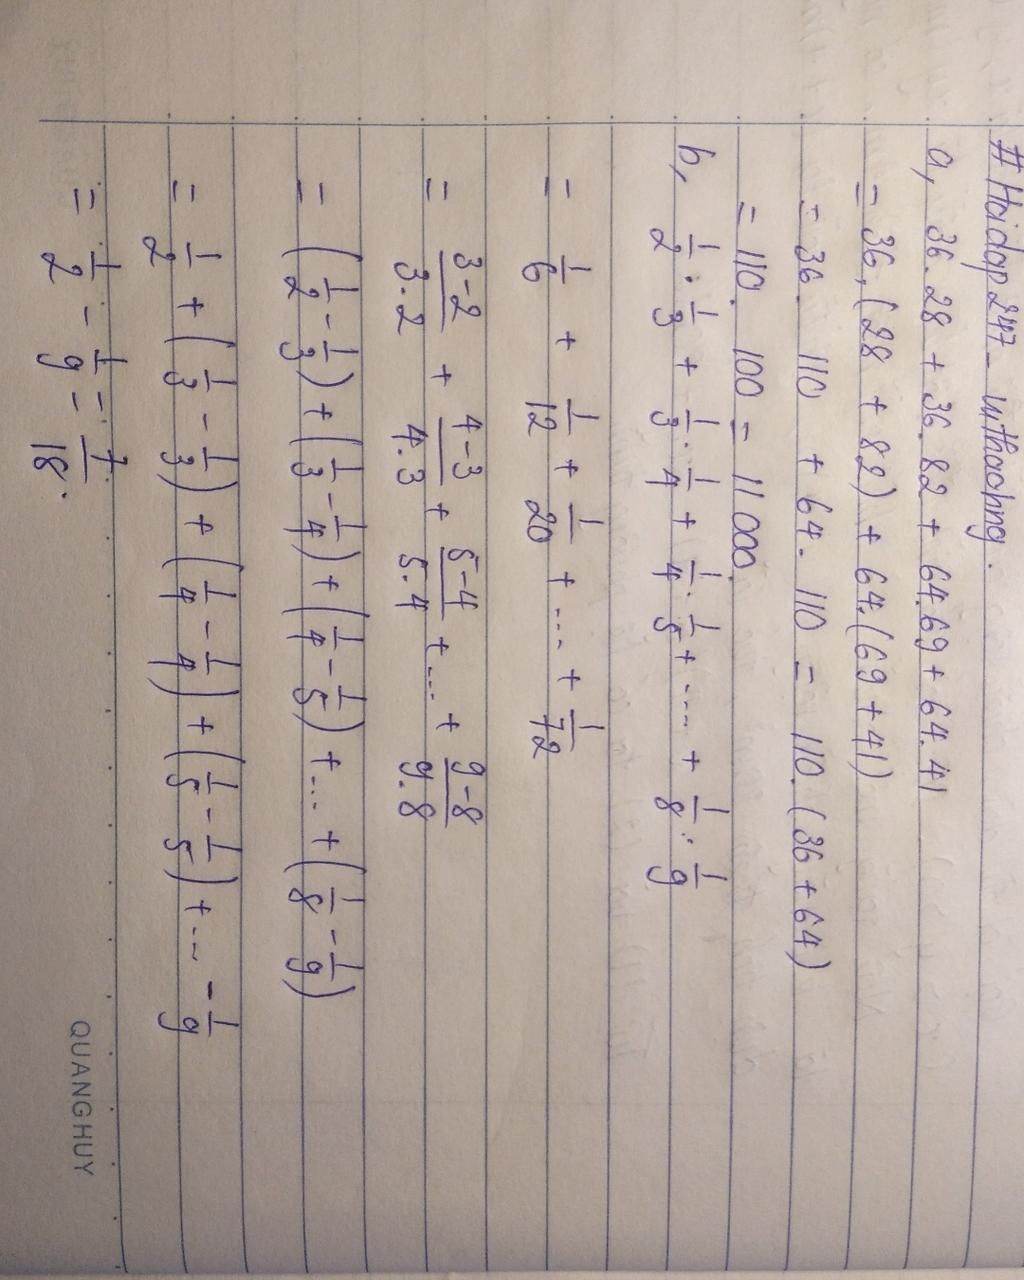 # Hoidap247_ uthaohng.
a, 36.28 + 36.82 + 64.69 + 64.41
= 36.(28 + 82) + 64.(69 + 41)
= 36. 110 + 64. 110 = 110.(36 + 64)
= 110. 100 = 11000
b, 1/2 . 1/3 + 1/3 . 1/4 + 1/4 . 1/5 + .... + 1/8 . 1/9
= 1/6 + 1/12 + 1/20 + .... + 1/72
= 3-2/3.2 + 4-3/4.3 + 5-4/5.4 + .... + 9-8/9.8
= (1/2 - 1/3) + (1/3 - 1/4) + (1/4 - 1/5) + ... + (1/8 - 1/9)
= 1/2 + (1/3 - 1/3) + (1/4 - 1/4) + (1/5 - 1/5) + ... - 1/9
= 1/2 - 1/9 = 7/18.
QUANG HUY